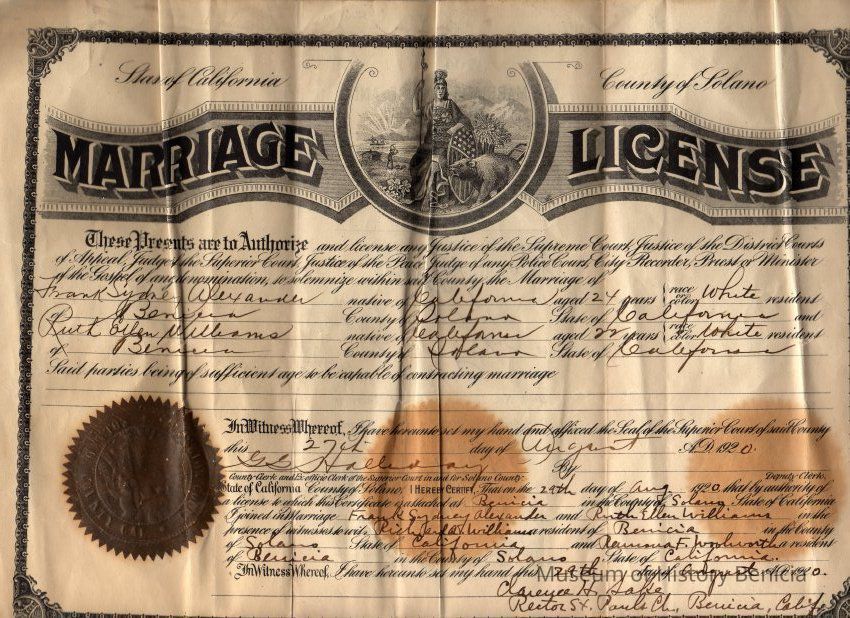 State of California
County of Solano
MARRIAGE LICENSE
These Presents are to Authorize and license any Justice of the Supreme Court, Justice of the District Courts
of Appeal, Judge of the Superior Court, Justice of the Peace, Judge of any Police Court, City Recorder, Priest or Minister
of the Gospel of any denomination, to solemnize within said County the Marriage of
Frank Sydney Alexander native of California aged 24 years race or color White resident
of Benicia County of Solano State of California and
Ruth Ellen Williams native of California aged 22 years race or color White resident
of Benicia County of Solano State of California
Said parties being of sufficient age to be capable of contracting marriage
In Witness Whereof, I have hereunto set my hand and affixed the Seal of the Superior Court of said County
this 27th day of August A.D. 1920.
G.G. Halliday By
County Clerk and Ex-officio Clerk of the Superior Court in and for Solano County. Deputy Clerk.
State of California County of Solano. I HEREBY CERTIFY, That on the 29th day of Aug 1920, that by authority of
a license to which this Certificate is attached at Benicia in the County of Solano State of California
I joined in Marriage Frank Sydney Alexander and Ruth Ellen Williams in the
presence of witnesses to wit, Williams a resident of Benicia in the County
of Solano State of California and F. a resident
of Benicia in the County of Solano State of California.
In Witness Whereof, I have hereunto set my hand this 29th day of August A.D. 1920.
Museum of History Benicia
Clarence H.
Rector St. Pauls Ch., Benicia, Calif.